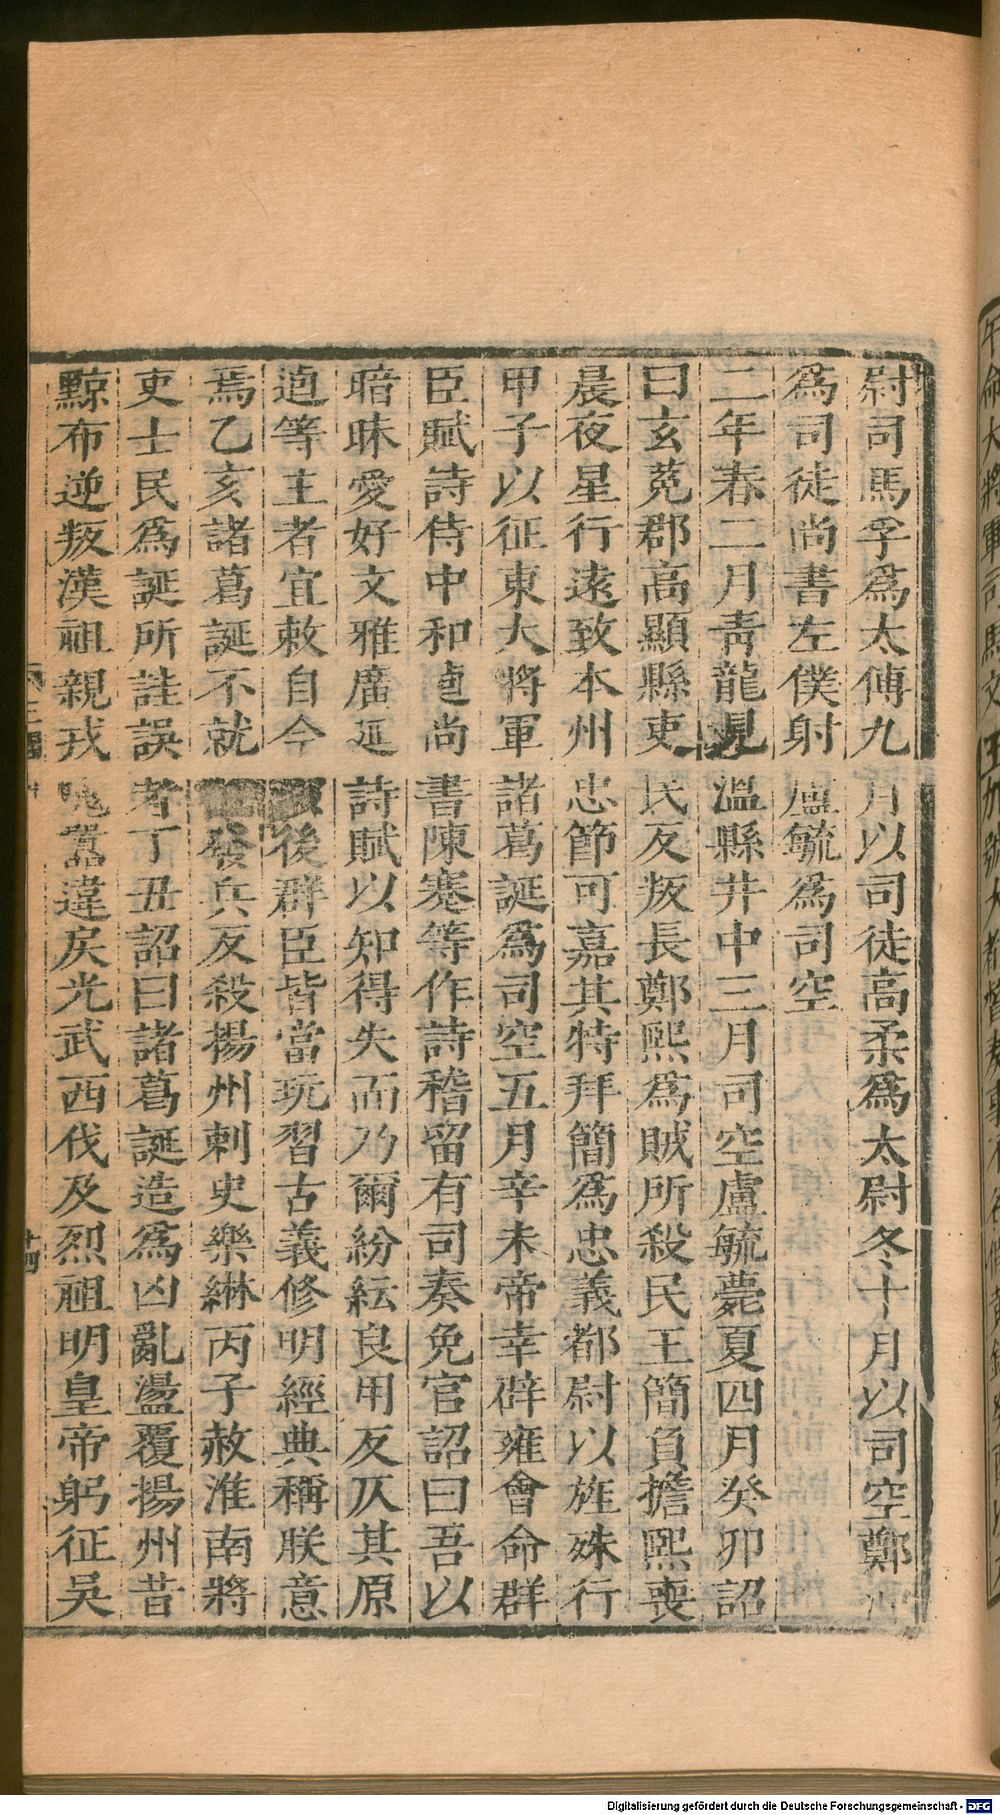 尉司馬孚爲太傅九月以司徒高柔爲太尉冬十月以司空鄭冲
爲司徒尚書左僕射盧毓爲司空
二年春二月青龍見溫縣井中三月司空盧毓薨夏四月癸卯詔
曰玄菟郡高顯縣吏民反叛長鄭熙爲賊所殺民王簡負擔熙喪
晨夜星行遠致本州忠節可嘉其特拜簡爲忠義都尉以旌殊行
甲子以征東大將軍諸葛誕爲司空五月辛未帝幸辟雍會命群
臣賦詩侍中和逌尚書陳騫等作詩稽留有司奏免官詔曰吾以
暗昧愛好文雅廣延詩賦以知得失而乃爾紛紜良用反仄其原
逌等主者宜敕自今以後群臣皆當玩習古義修明經典稱朕意
焉乙亥諸葛誕不就發兵反殺揚州刺史樂綝丙子赦淮南將
吏士民爲誕所詿誤者丁丑詔曰諸葛誕造爲凶亂盪覆揚州昔
黥布逆叛漢祖親戎隗囂違戾光武西伐及烈祖明皇帝躬征吳
十四
Digitalisierung gefördert durch die Deutsche Forschungsgemeinschaft - DFG